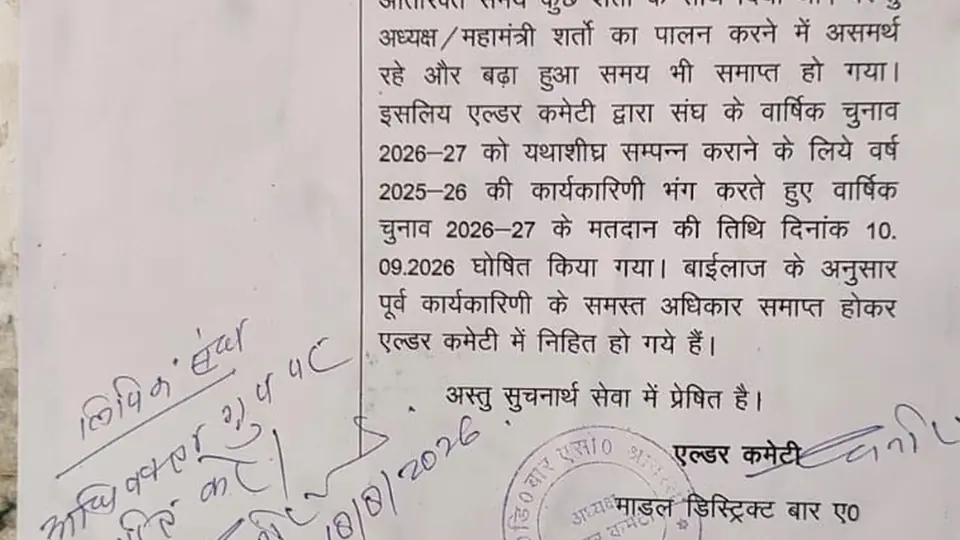 अतिरिक्त समय कुछ शर्तो के साथ दिया
अध्यक्ष/महामंत्री शर्तो का पालन करने में असमर्थ
रहे और बढ़ा हुआ समय भी समाप्त हो गया।
इसलिय एल्डर कमेटी द्वारा संघ के वार्षिक चुनाव
2026–27 को यथाशीघ्र सम्पन्न कराने के लिये वर्ष
2025–26 की कार्यकारिणी भंग करते हुए वार्षिक
चुनाव 2026–27 के मतदान की तिथि दिनांक 10.
09.2026 घोषित किया गया। बाईलाज के अनुसार
पूर्व कार्यकारिणी के समस्त अधिकार समाप्त होकर
एल्डर कमेटी में निहित हो गये हैं।
अस्तु सुचनार्थ सेवा में प्रेषित है।
एल्डर कमेटी
माडल डिस्ट्रिक्ट बार ए0
लिपिक संघ
करें।
18/8/2026
डि0 बार एसो0
अध्यक्ष
कमेटी